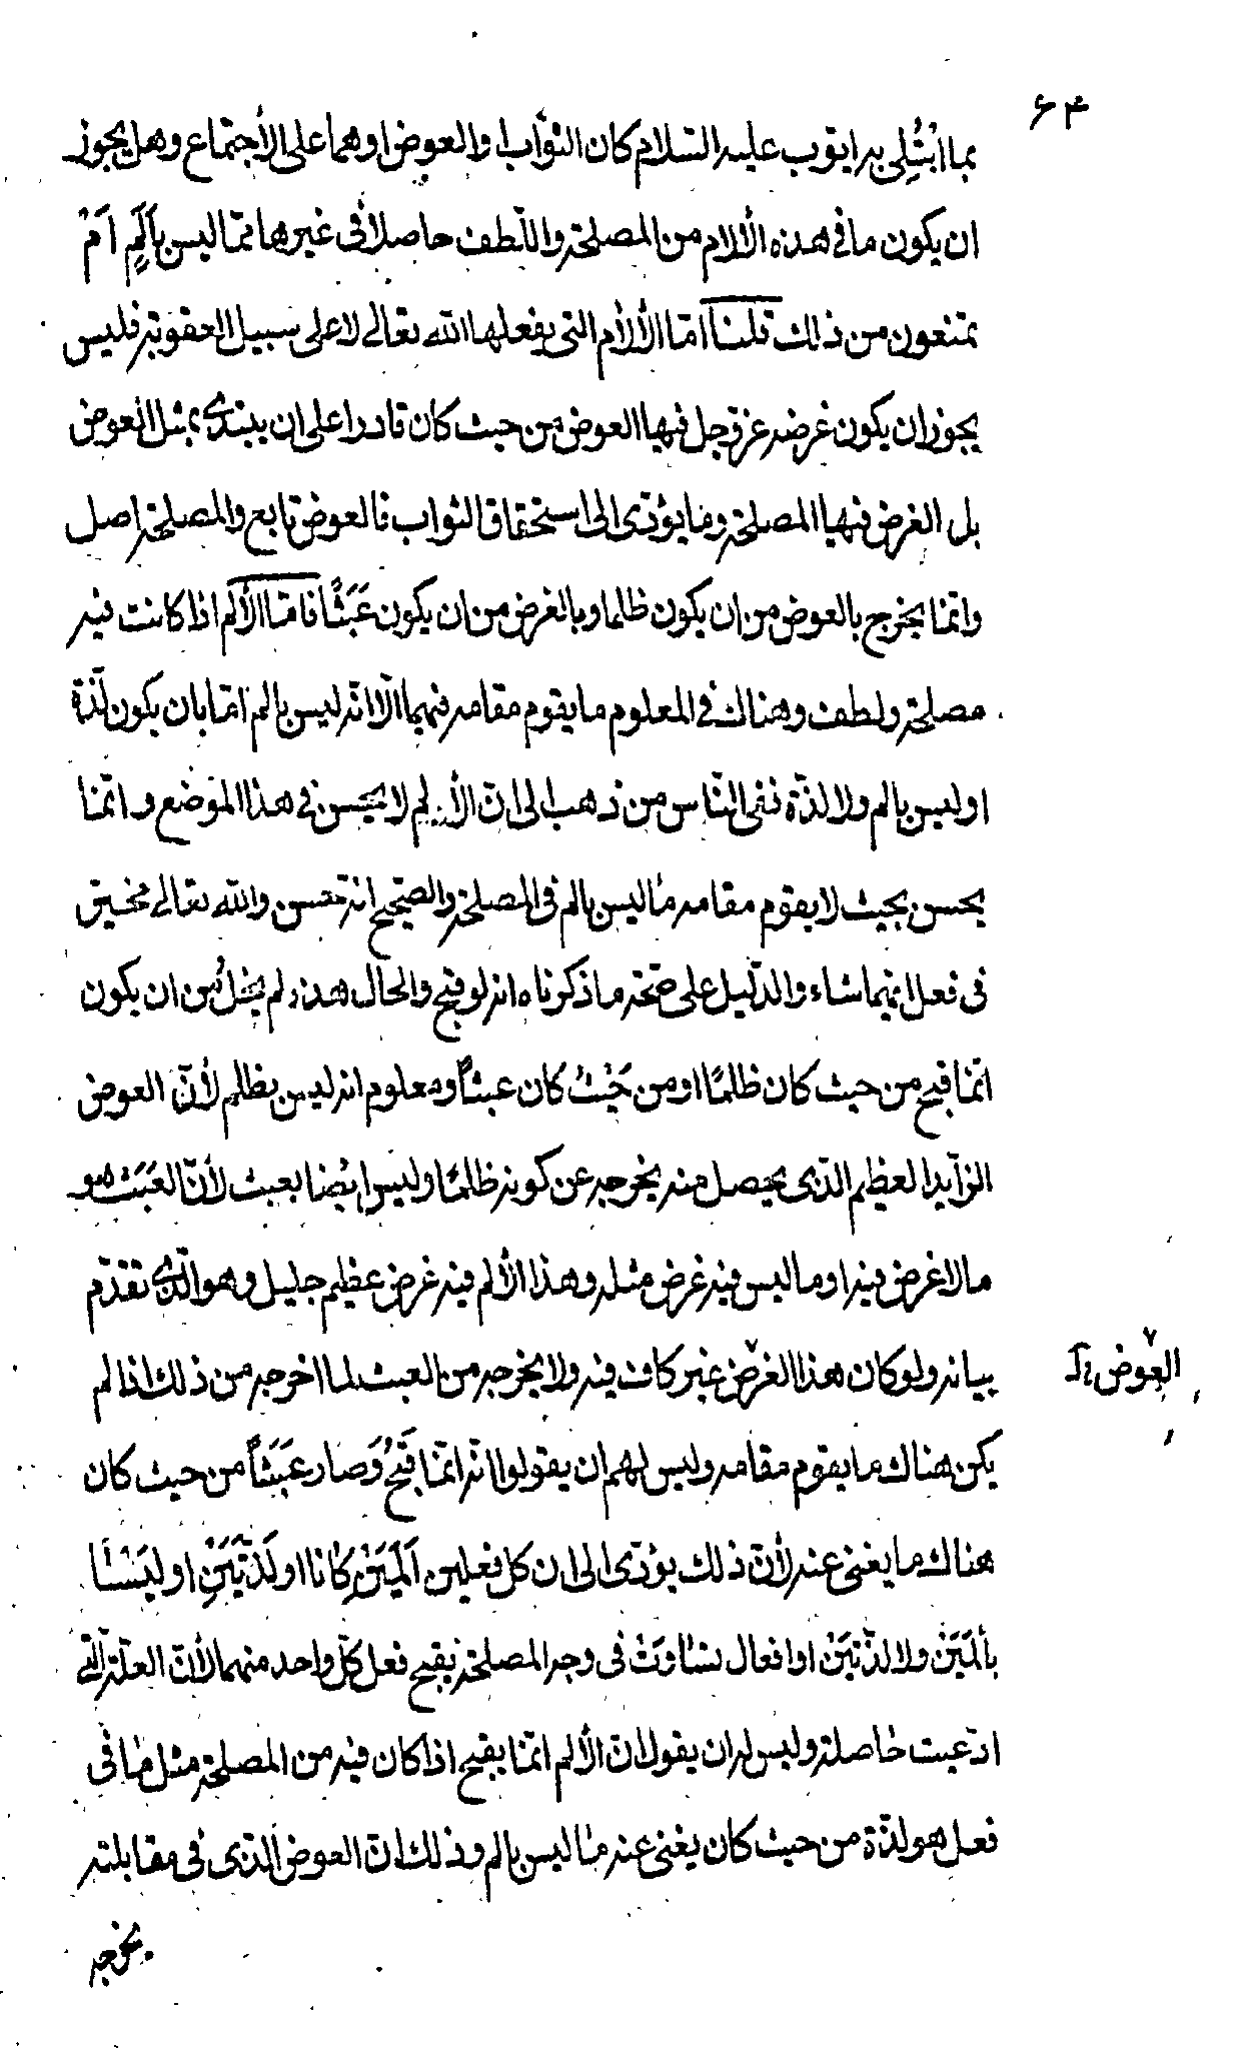 ۶۴
بما ابْتُلِی به ایّوب علیه السّلام کان الثّواب او العوض او هما علی الأجتماع وهل یجوز
ان یکون ما فی هذه الألام من المصلحة واللّطف حاصلاً فی غیرها ممّا لیس بأَلَمٍ اَمْ
تمنعون من ذلك قلنا امّا الألام التی یفعلها الله تعالی لا علی سبیل العقوبة فلیس
یجوز ان یکون غرضه عزّ وجل فیها العوض من حیث کان قادرا علی ان یبتدئ بمثل العوض
بل الغرض فیها المصلحة وما یؤدّی الی استحقاق الثواب فالعوض تابع والمصلحة اصل
وانّما یخرج بالعوض من ان یکون ظلما وبالغرض من ان یکون عَبَثًا فامّا الألم اذا کانت فیه
مصلحة ولطف وهناك فی المعلوم ما یقوم مقامه فیهما الّا انّه لیس بالم امّا بان یکون لذّة
او لیس بالم ولا لذّة ففی النّاس من ذهب الی انّ الألم لا یحسن فی هذا الموضع وانّما
یحسن بحیث لا یقوم مقامه ما لیس بالم فی المصلحة والصّحیح انّه حسن والله تعالی مخیّر
فی فعل ایّهما شاء والدّلیل علی صحّة ما ذکرناه انه لو قبح والحال هذه لم یخلُ من ان یکون
انّما قبح من حیث کان ظلمًا او من حَیْثُ کان عبثاً ومعلوم انه لیس بظلم لأنّ العوض
الزّاید العظیم الّذی یحصل منه یخرجه عن کونه ظلماً ولیس ایضا بعبث لأنّ العَبَث هو
ما لا غرض فیه او ما لیس فیه غرض مثله وهذا الألم فیه غرض عظیم جلیل وهو الّذی تقدّم
بیانه ولو کان هذا الغرض غیر کاف فیه ولا یخرجه من العبث لما اخرجه من ذلك اذا لم
العوض
یکن هناك ما یقوم مقامه ولیس لهم ان یقولوا انّه انّما قَبُحَ وَصار عَبَثَاً من حیث کان
هناك ما یغنی عنه لأنّ ذلك یؤدّی الی ان کل فعلین اَلَمَیْنِ کانا او لَذَّتَیْنِ او لیَسْتَا
بأَلَمَیْن ولا لذّتیَن او افعال تساوَتْ فی وجه المصلحة یقبح فعل کلّ واحد منهما لأنّ العلّة الّتی
ادّعیت حاصلة ولیس له ان یقول انّ الألم انّما یقبح اذا کان فیه من المصلحة مثل ما فی
فعل هو لذّة من حیث کان یغنی عنه ما لیس بالم وذلك انّ العوض الّذی فی مقابلته
یخرجه